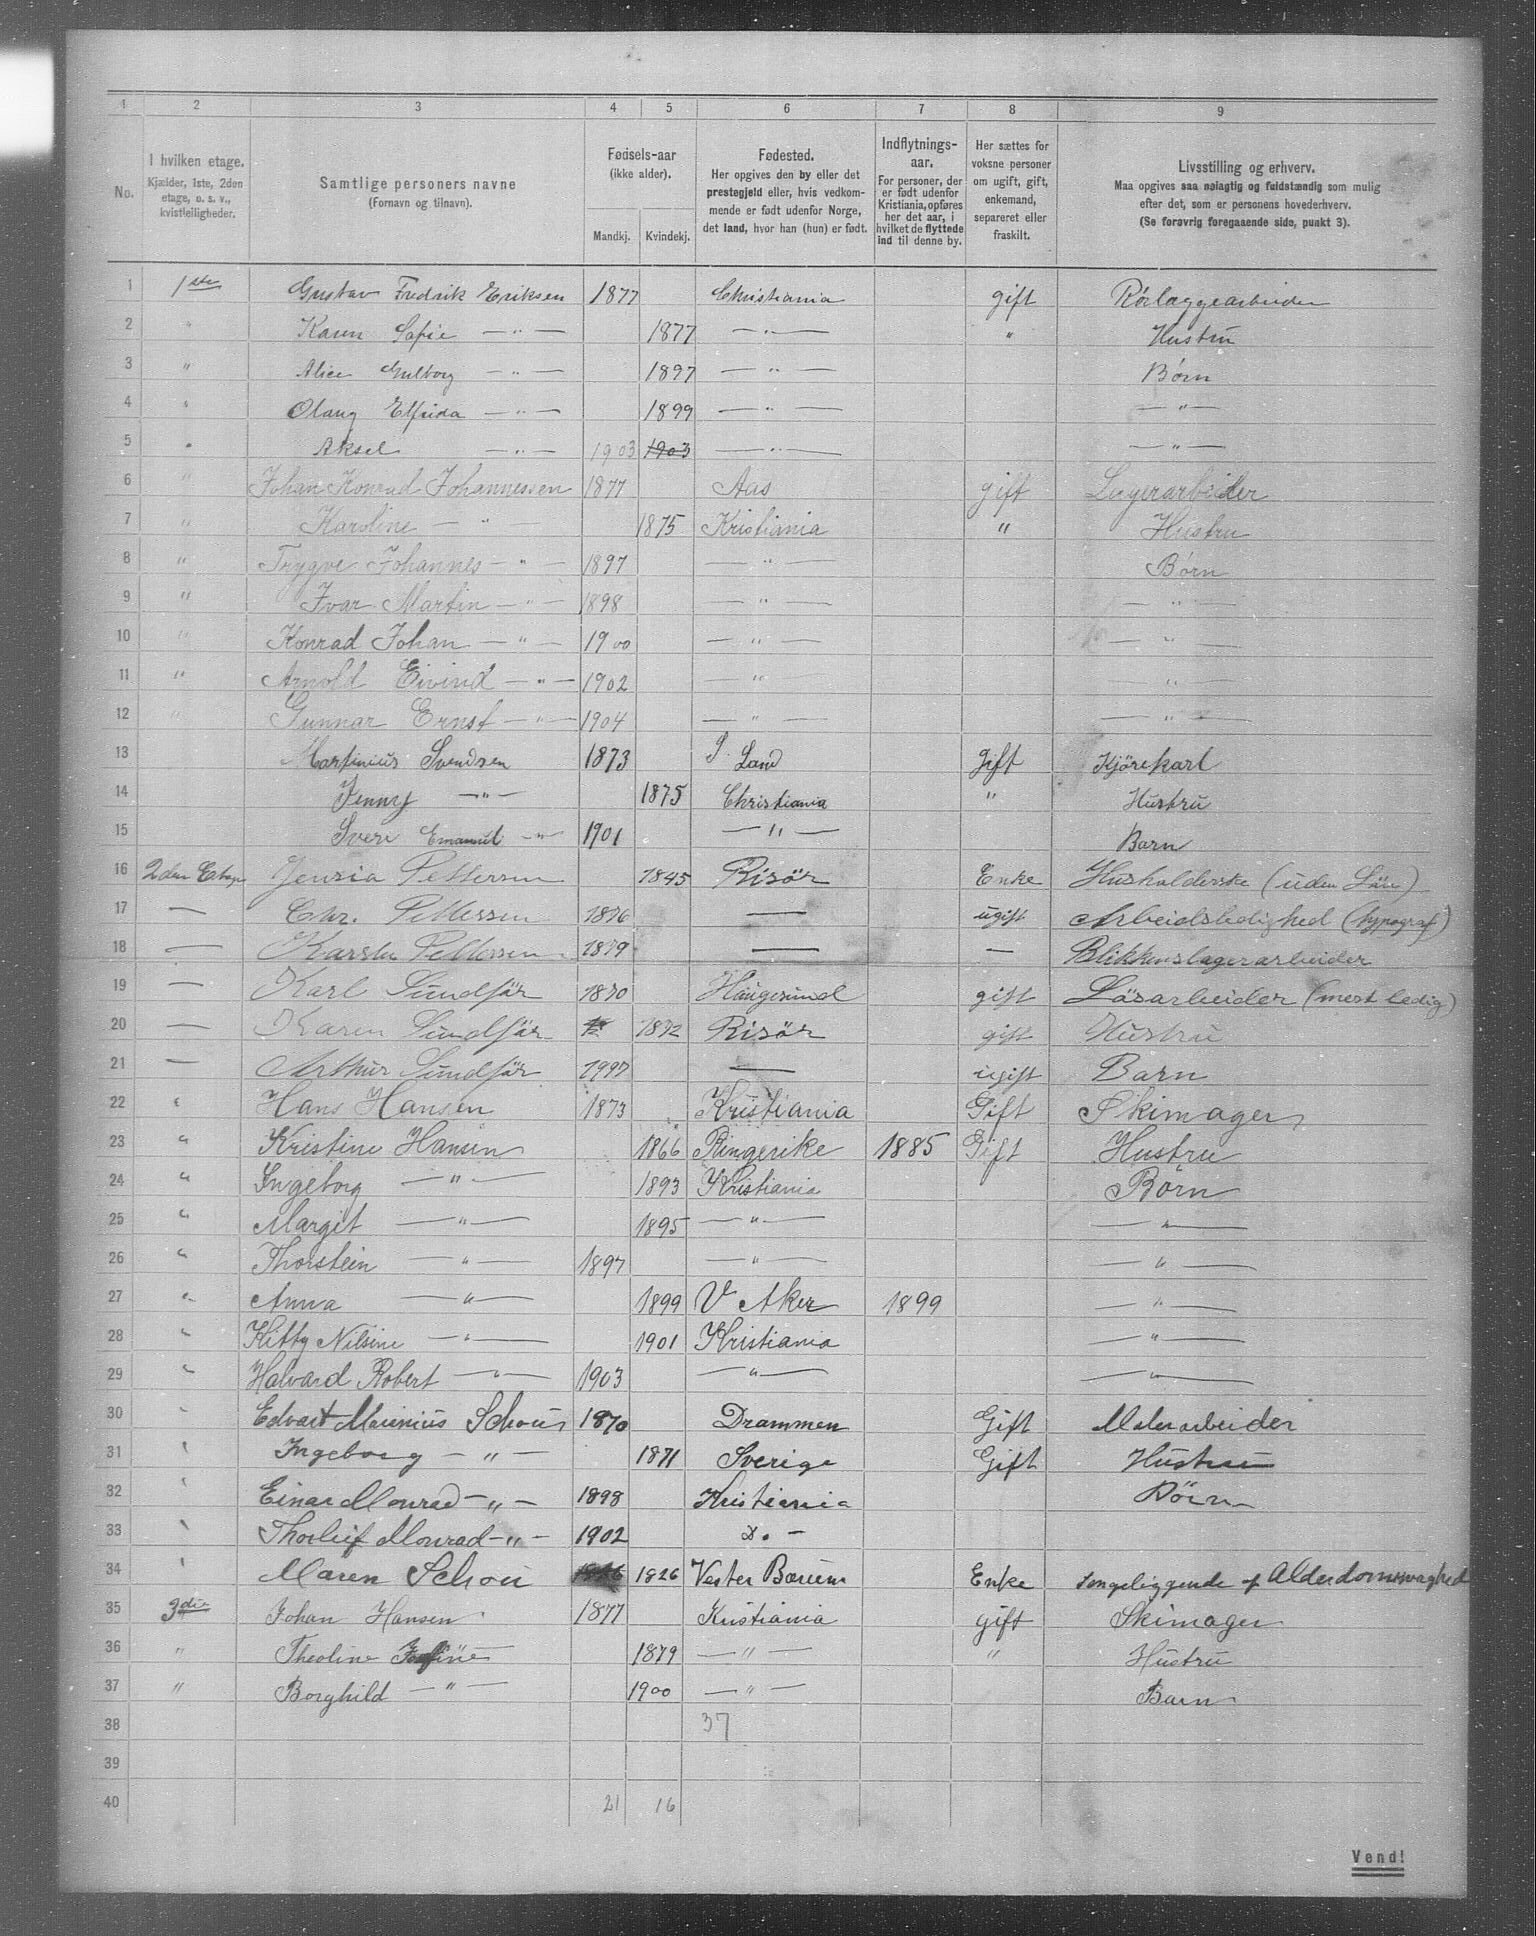 1 2 3 4 5 6 7 8 9
No. I hvilken etage. Kjælder, 1ste, 2den etage, o. s. v., kvistleiligheder. Samtlige personers navne (Fornavn og tilnavn). Fødsels-aar (ikke alder). Mandkj. Kvindekj. Fødested. Her opgives den by eller det prestegjeld eller, hvis vedkommende er født udenfor Norge, det land, hvor han (hun) er født. Indflytnings-aar. For personer, der er født udenfor Kristiania, opføres her det aar, i hvilket de flyttede ind til denne by. Her sættes for voksne personer om ugift, gift, enkemand, separeret eller fraskilt. Livsstilling og erhverv. Maa opgives saa nøiagtig og fuldstændig som mulig efter det, som er personens hovederhverv. (Se forøvrig foregaaende side, punkt 3).
1 1ste Gustav Fredrik Eriksen 1877 Christiania gift Rörlæggearbeider
2 " Karen Sofie — " — 1877 — " — " Hustru
3 " Alice Gulborg — " — 1897 — " — Børn
4 " Olaug Elfrida — " — 1899 — " — — " —
5 " Aksel — " — 1903 1903 — " — — " —
6 " Johan Konrad Johannessen 1877 Aas gift Lagerarbeider
7 " Karoline — " — 1875 Kristiania " Hustru
8 " Trygve Johannes — " — 1897 — " — Børn
9 " Ivar Martin — " — 1898 — " — — " —
10 " Konrad Johan — " — 1900 — " — — " —
11 " Arnold Eivind — " — 1902 — " — — " —
12 " Gunnar Ernst — " — 1904 — " — — " —
13 Martinius Svendsen 1873 S. Land Gift Kjörekarl
14 Jenny — " — 1875 Christiania " Hustru
15 Svere Emanuel — " — 1901 — " — Barn
16 2den Etage Jensia Pettersen 1845 Risör Enke Husholderske (uden Lön)
17 — Chr. Pettersen 1876 — ugift Arbeidsledighed (typograf)
18 — Karsten Pettersen 1879 — — Blikkenslagerarbeider
19 — Karl Sundfjär 1870 Haugesund gift Lösarbeider (mest ledig)
20 — Karen Sundfjär 1872 Risör gift Hustru
21 — Arthur Sundfjär 1997 — ugift Barn
22 " Hans Hansen 1873 Kristiania Gift Skimager
23 " Kristine Hansen 1866 Ringerike 1885 Gift Hustru
24 " Ingeborg — " — 1893 Kristiania Børn
25 " Margit — " — 1895 — " — — " —
26 " Thorstein — " — 1897 — " — — " —
27 " Anna — " — 1899 V Aker 1899 — " —
28 " Kitty Nilsine — " — 1901 Kristiania — " —
29 " Halvard Robert — " — 1903 — " — — " —
30 " Edvart Marinius Schou 1870 Drammen Gift Malerarbeider
31 " Ingeborg — " — 1871 Sverige Gift Hustru
32 " Einar Monrad — " — 1898 Kristiania Børn
33 " Thorleif Monrad — " — 1902 D. —
34 " Maren Schou 1826 1826 Vester Bærum Enke Sengeliggende af Alderdomssvaghed
35 3die Johan Hansen 1877 Kristiania gift Skimager
36 " Theoline 1879 — " — " Hustru
37 " Borghild — " — 1900 — " — Barn
38 37
39
40 21 16
Vend!